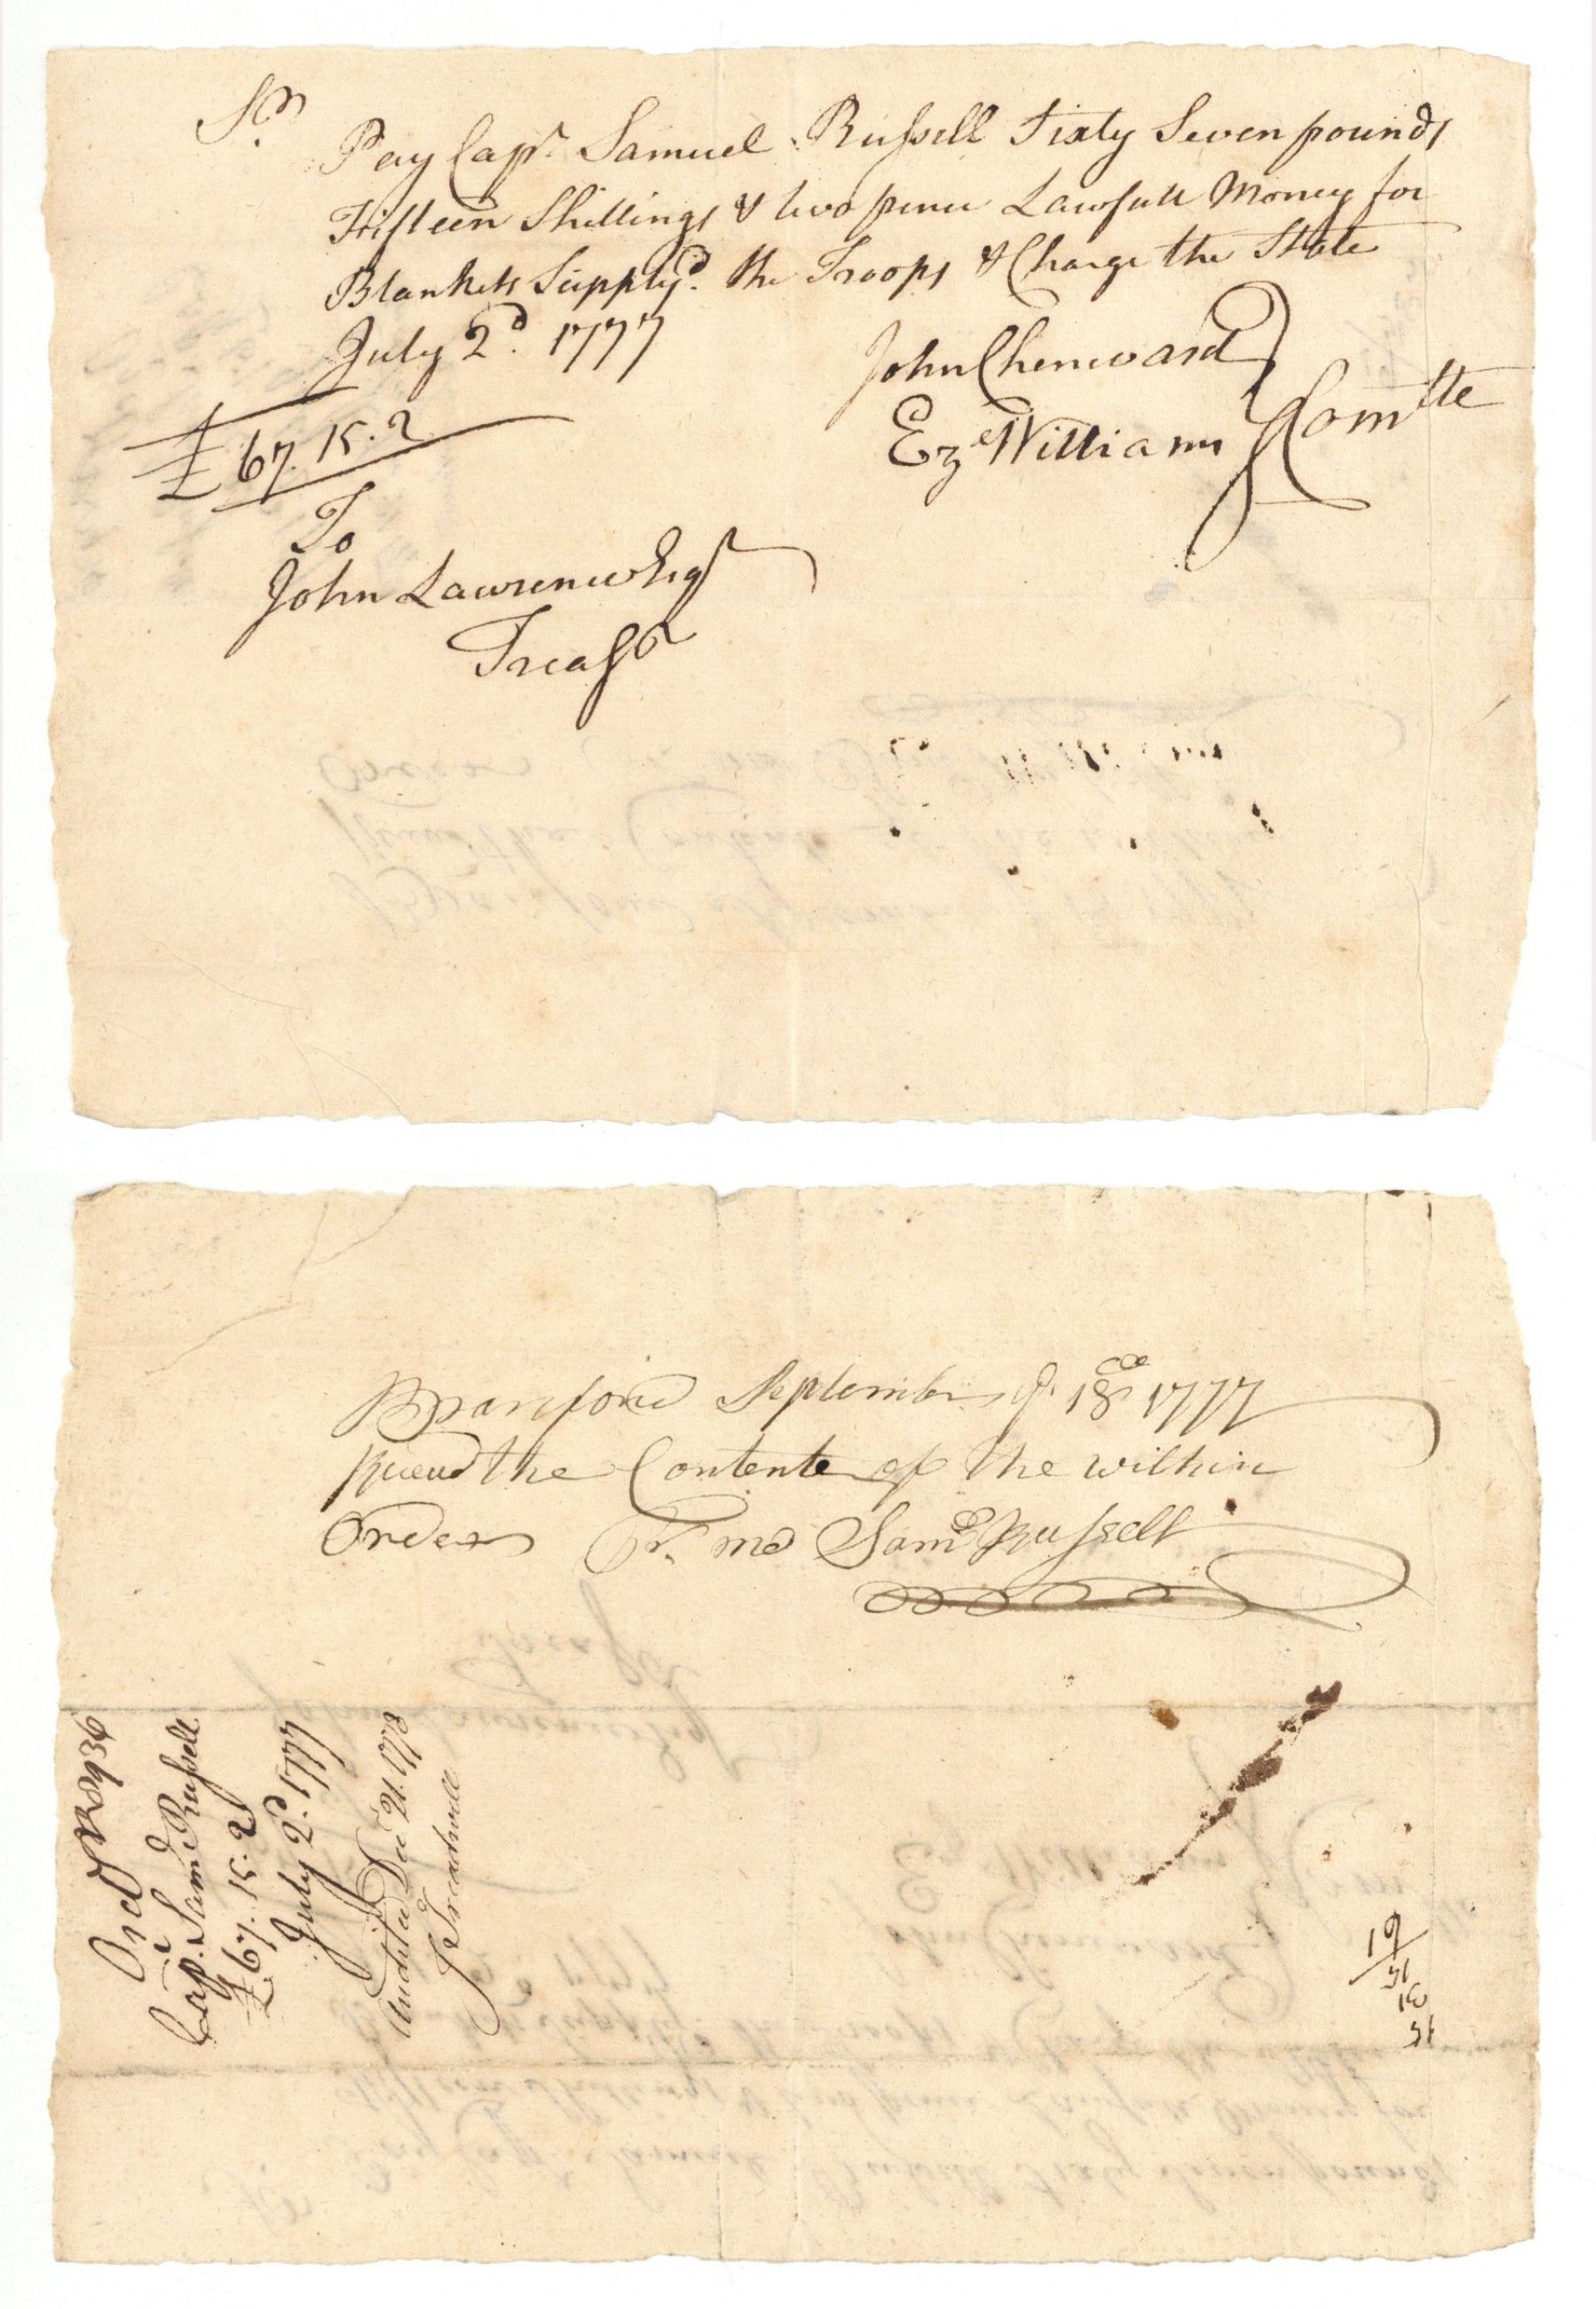 Sr
Pay Capt. Samuel Russell Sixty Seven pounds
Fifteen Shillings & two pence Lawfull Money for
Blankets Supplyd. the Troops & Charge the State
July 2d. 1777
John Chenward
Comtte
Eze Williams
£67.15.2
To
John Lawrence Esqr
Treasr
Branford September ye 18 1777
Recevd the Contente of the within
Order Pr. me Saml Russell
Ord 8936
Capt. Saml Russell
£67.15.2
July 2d. 1777
Audited Decr 21. 1778
J Treadwell
19